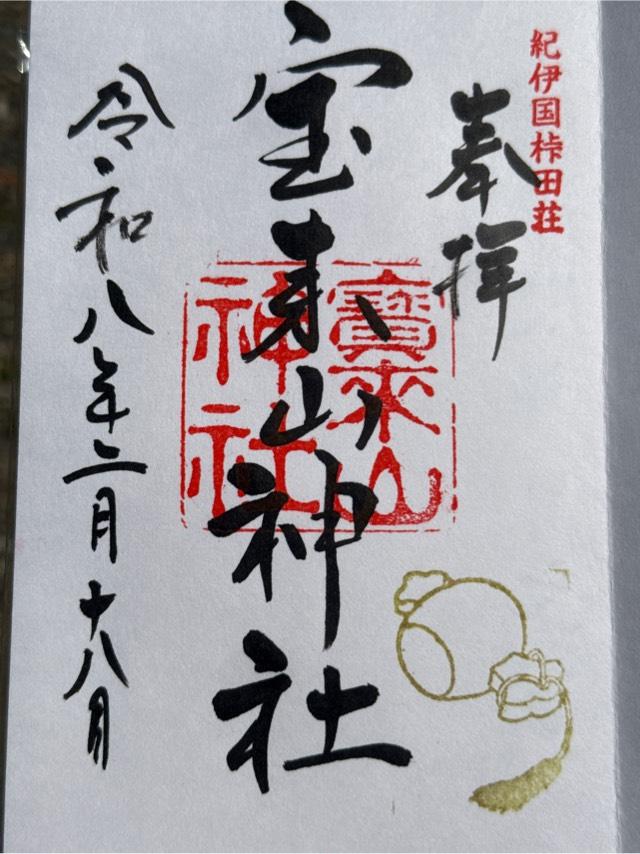 紀伊国桛田荘
奉拝
宝来山神社
寶來山
神社
令和八年二月十八日